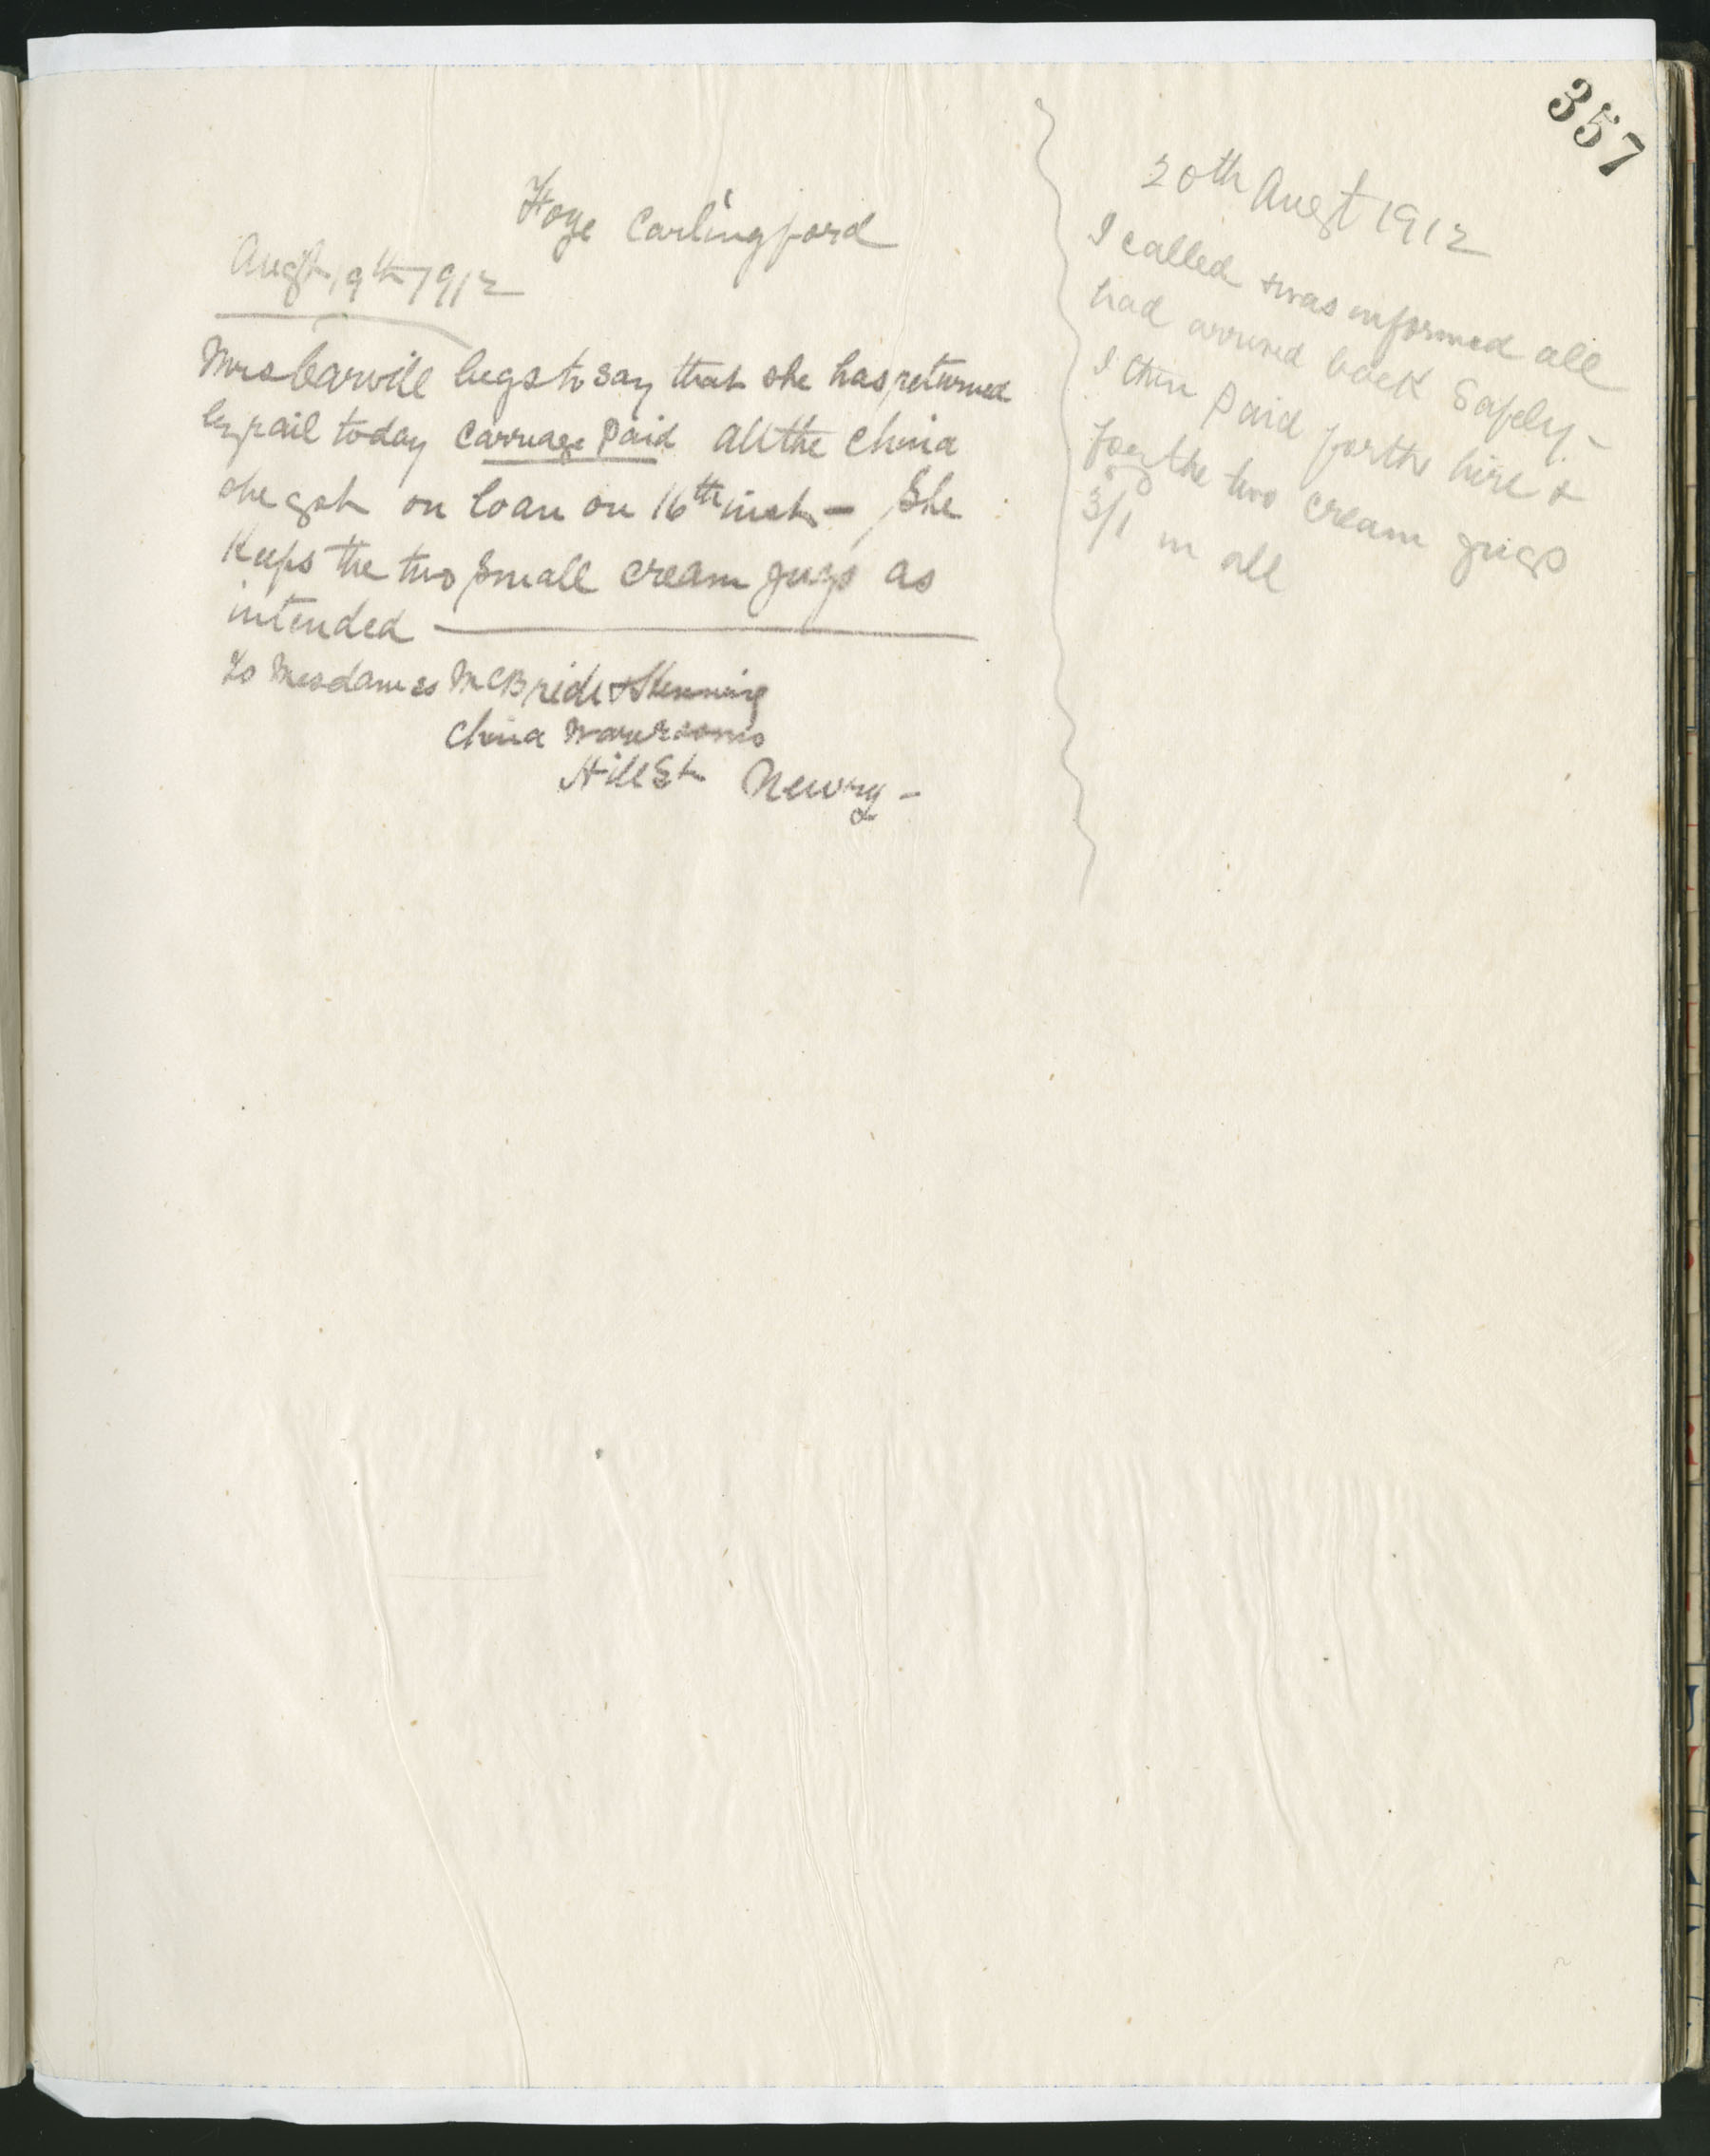 357
Carlingford
Augst 19th 1912
Mrs Carvill begs to say that she has returned
by rail today carriage paid all the china
she got on loan on 16th inst - She
keeps the two small cream jugs as
intended
To Mesdames McBride &
China Warerooms
Hill St Newry -
20th Augst 1912
I called & was informed all
had arrived back safely -
I then paid for the hire &
for the two cream jugs
3/1 in all